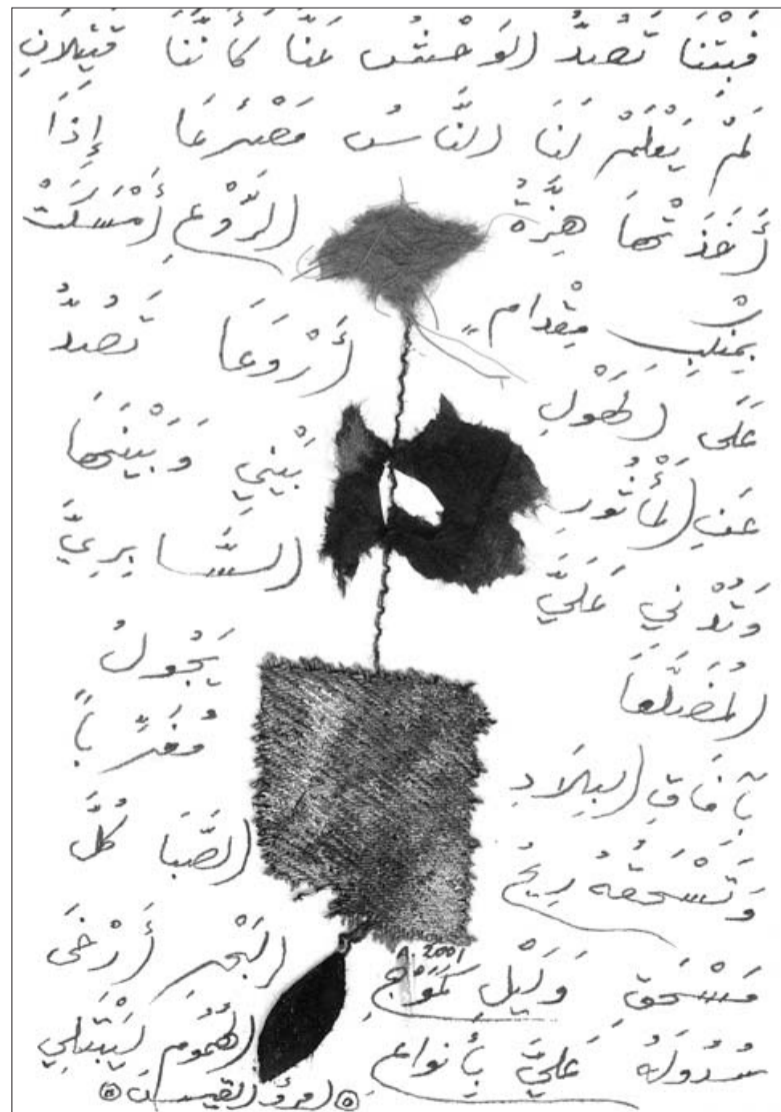 فَبِتْنَا تَصُدُّ الوَحْشُ عَنَّا كَأَنَّنَا قَتِيلَانِ
لَمْ يَعْلَمْ لَنَا النَّاسُ مَصْرَعَا إِذَا
أَخَذَتْهَا هِزَّةُ الرَّوْعِ أَمْسَكَتْ
بِمَنْكِبِ مِقْدَامٍ أَرْوَعَا تَصُدُّ
عَلَى الهَوْلِ بَيْنِي وَبَيْنَهَا
عَنِ المَأْثُورِ السَّابِرِيَّ
وَتُدْنِي عَلَيَّ يَجُولُ
المُضَلَّعَا مُغَرِّباً
بِآفَاقِ البِلَادِ الصَّبَا كُلَّ
وَتَسْحَقُهُ رِيحُ
A. 2001
مَسْحَقِ وَلَيْلٍ كَمَوْجِ البَحْرِ أَرْخَى
سُدُولَهُ عَلَيَّ بِأَنواعِ الهُمُومِ لِيَبْتَلِي
امرؤ القيس